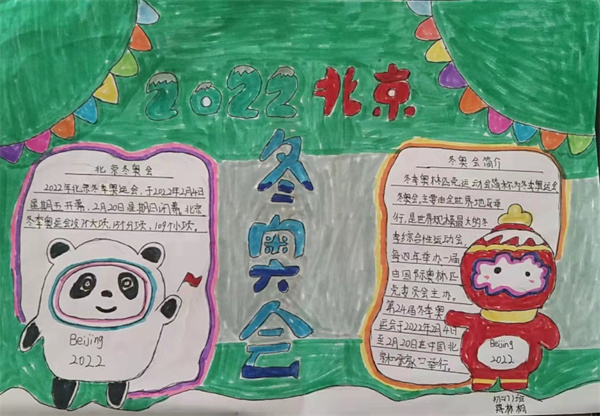 2022北京
冬奥会
北京冬奥会
2022年北京冬季奥运会,于2022年2月4日
星期五开幕,2月20日星期日闭幕,北京
冬季奥运会设7大项,15个分项,109个小项。
Beijing
2022
冬奥会简介
冬季奥林匹克运动会简称为冬季奥运会
冬奥会主要由全世界地区举
行,是世界规模最大的冬
季综合性运动会
每四年举办一届
由国际奥林匹
克委员会主办。
第24届冬季奥
运会于2022年2月4日
至2月20日在中国北
京和张家口举行。
Beijing
2022
班